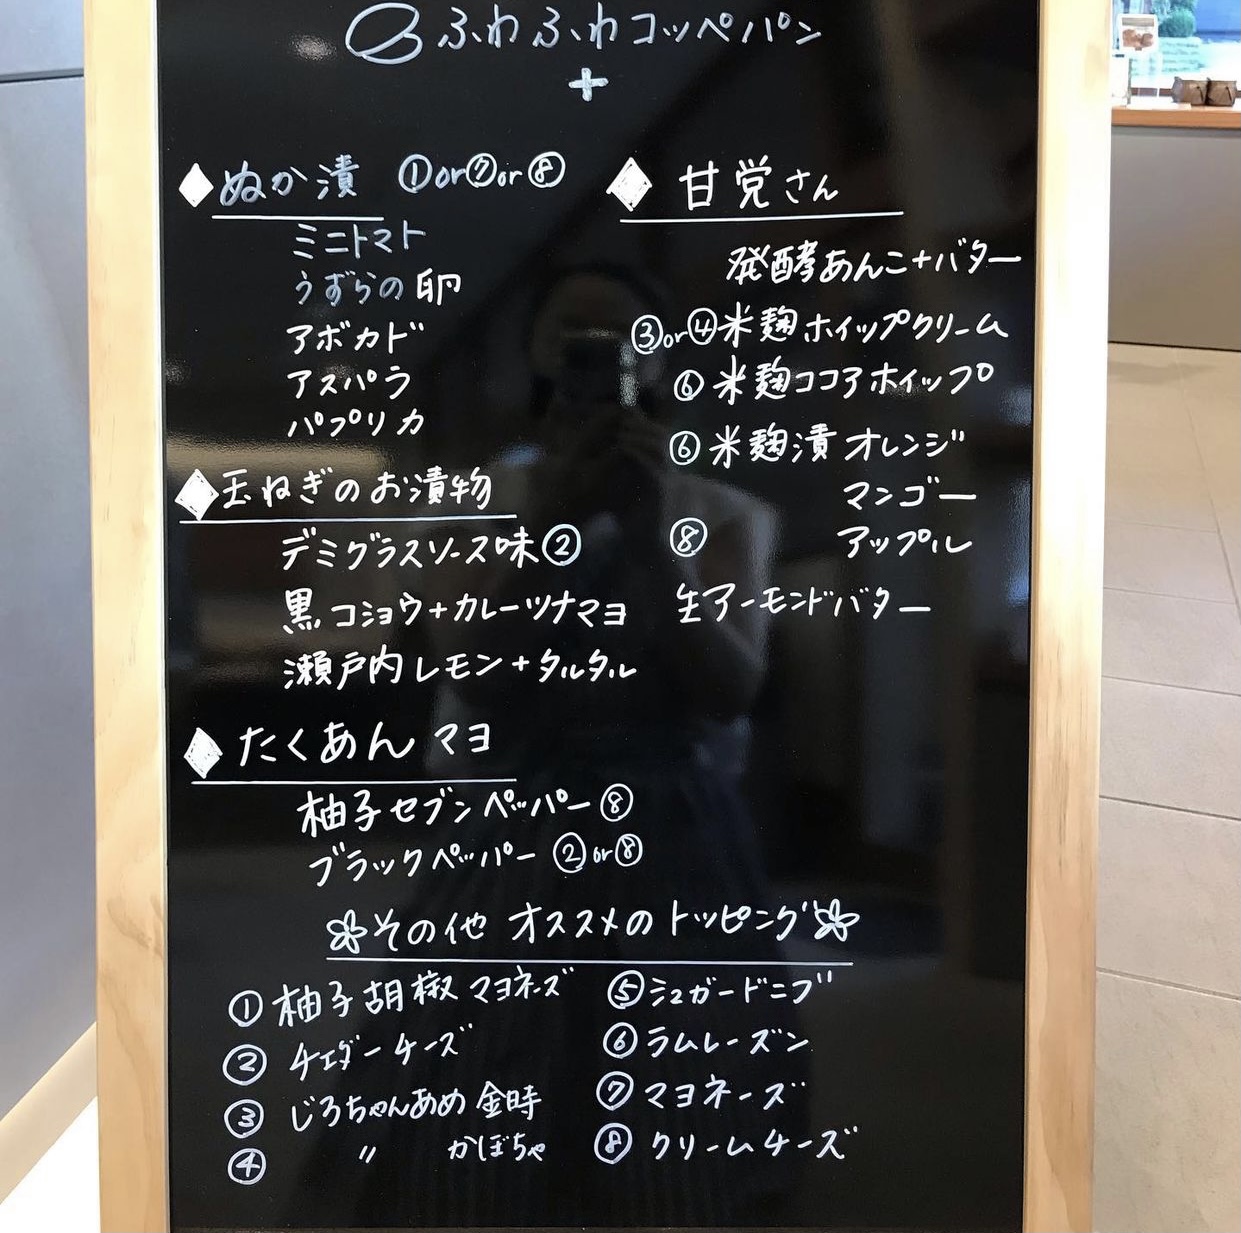 ふわふわコッペパン
+
◆ぬか漬 ①or⑦or⑧
ミニトマト
うずらの卵
アボカド
アスパラ
パプリカ
◆玉ねぎのお漬物
デミグラスソース味②
黒コショウ+カレーツナマヨ
瀬戸内レモン+タルタル
◆たくあんマヨ
柚子セブンペッパー⑧
ブラックペッパー②or⑧
◆甘党さん
発酵あんこ+バター
③or④米麹ホイップクリーム
⑥米麹ココアホイップ
⑥米麹漬オレンジ
マンゴー
⑧ アップル
生アーモンドバター
その他 オススメのトッピング
①柚子胡椒マヨネーズ
②チェダーチーズ
③じろちゃんあめ金時
④ 〃 かぼちゃ
⑤シュガードニブ
⑥ラムレーズン
⑦マヨネーズ
⑧クリームチーズ